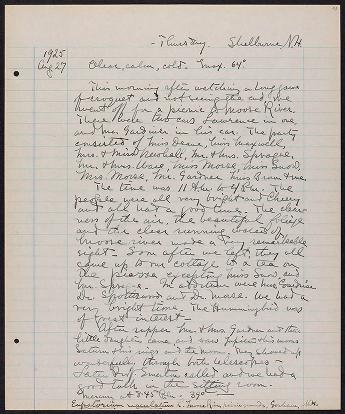 - Thursday. Shelburne, N.H.
1925
Aug 27 Clear, calm, cold. Tmax. 64°
This morning after watching a long game
of croquet and not seeing the end, we
went off for a picnic to Moose River.
There were two cars Lawrence in one
and Mr. Gardner in his car. The party
consisted of Miss Deane, Miss Maxwell,
Mrs. & Miss Newhall, Mr. & Mrs. Sprague,
Mr. & Mrs.
Mrs. Morse, Mr. Gardner
The time was 11 A.M. to 4 P.M. The
people were all very bright and cheery
and all had a good time. The clear-
ness of the air, the beautiful foliage
and the clear running water of
Moose river made a very remarkable
sight. Soon after we left, they all
came up to our cottage to a tea on
the piazza excepting Miss
Mr. Sprague. In addition were Mrs. Gardner
Dr. and Dr. Morse. We had a
very bright time. The Hummingbird was
of great interest.
After supper Mr. & Mrs. Gardner and their
little daughter came and saw Jupiter & his moons
Saturn & his rings and the moon. They showed up
wonderfully through both telescopes.
Later Prof. Emerton called and we had a
good talk in the sitting room.
Evening at 8.45 P.M. 39°
Eupatorium Gorham, N.H.